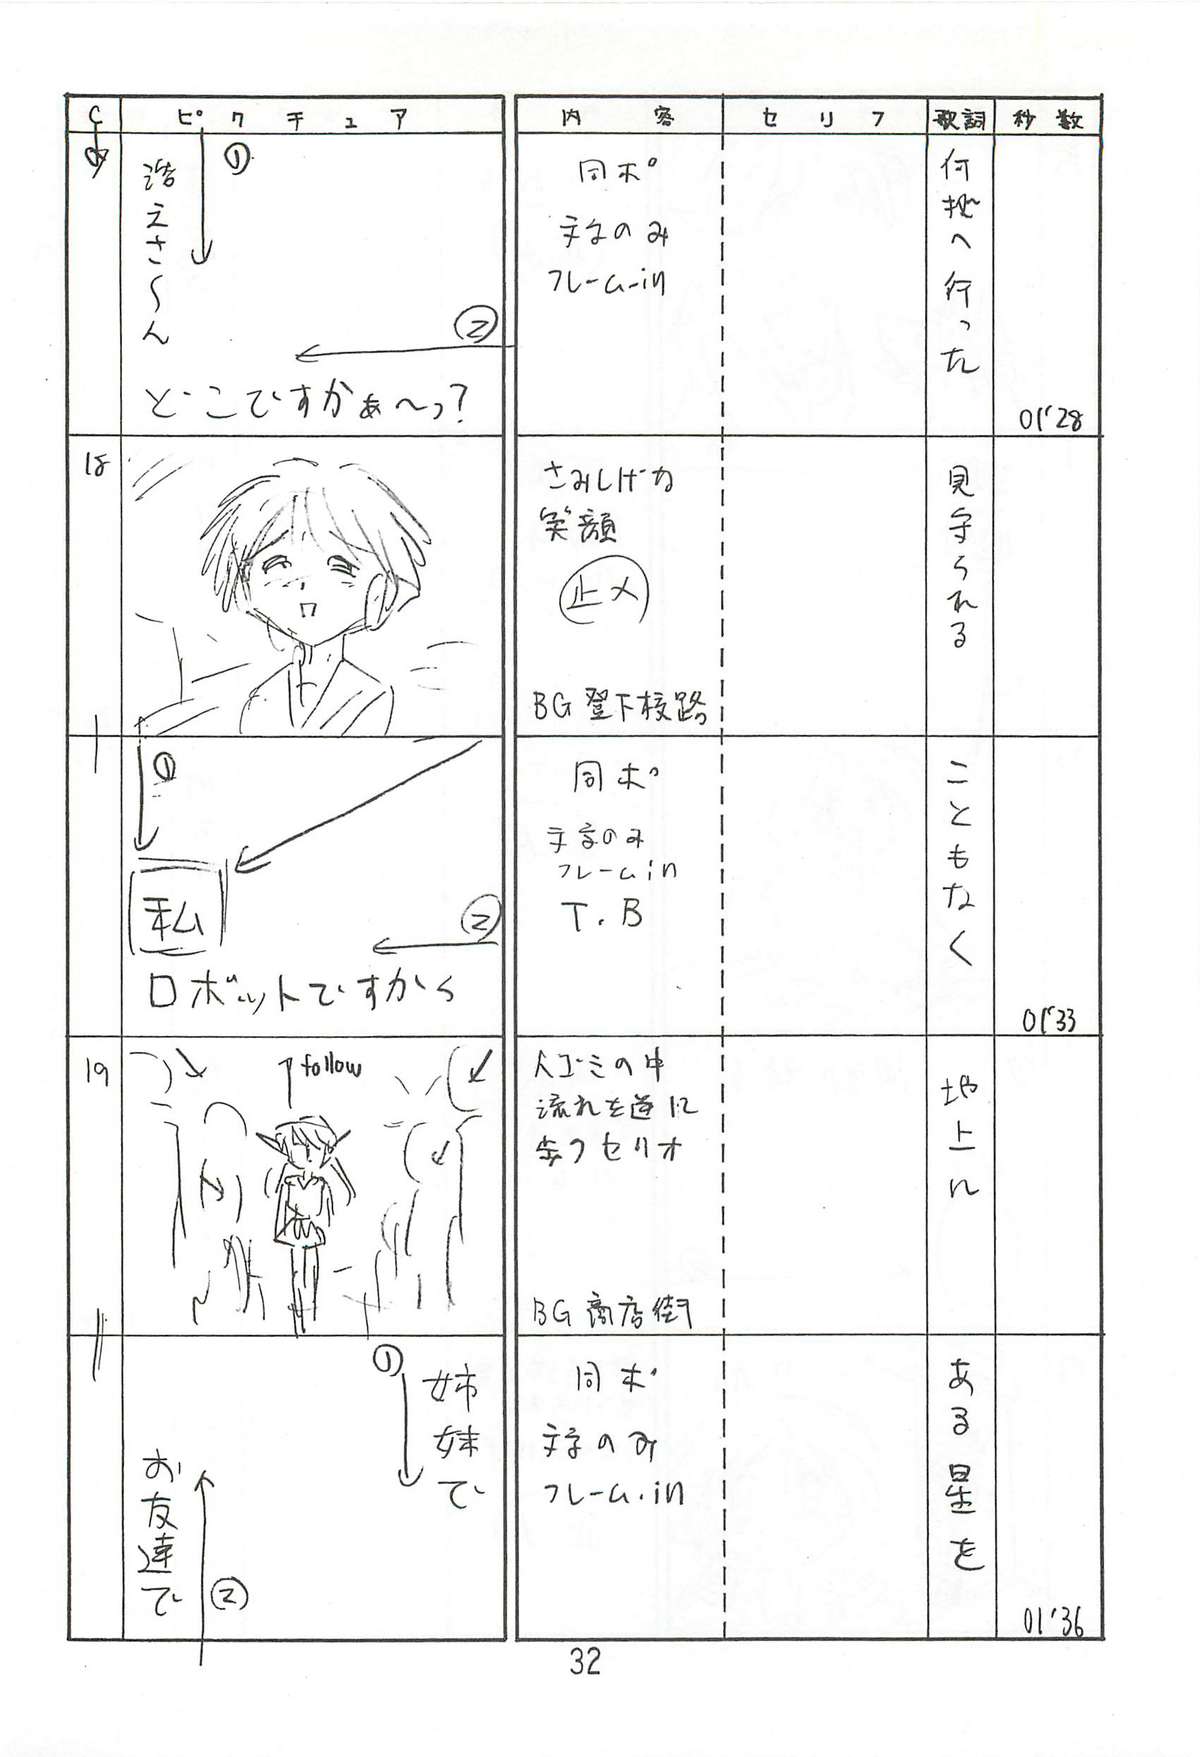 C ピクチュア 内容 セリフ 歌詞 秒数
①
浩えさ〜ん
②
どこですかぁ〜っ?
同ポ
文字のみ
フレームーin
何処へ行った
01'28
18
さみしげな
笑顔
止メ
BG 登下校路
見守られる
①
私
②
ロボットですから
同ポ
文字のみ
フレームin
T.B
こともなく
01'33
19
follow
人ゴミの中
流れを逆に
歩くセリオ
BG 商店街
地上に
①
姉妹で
お友達で
②
同ポ
文字のみ
フレーム.in
ある星を
01'36
32